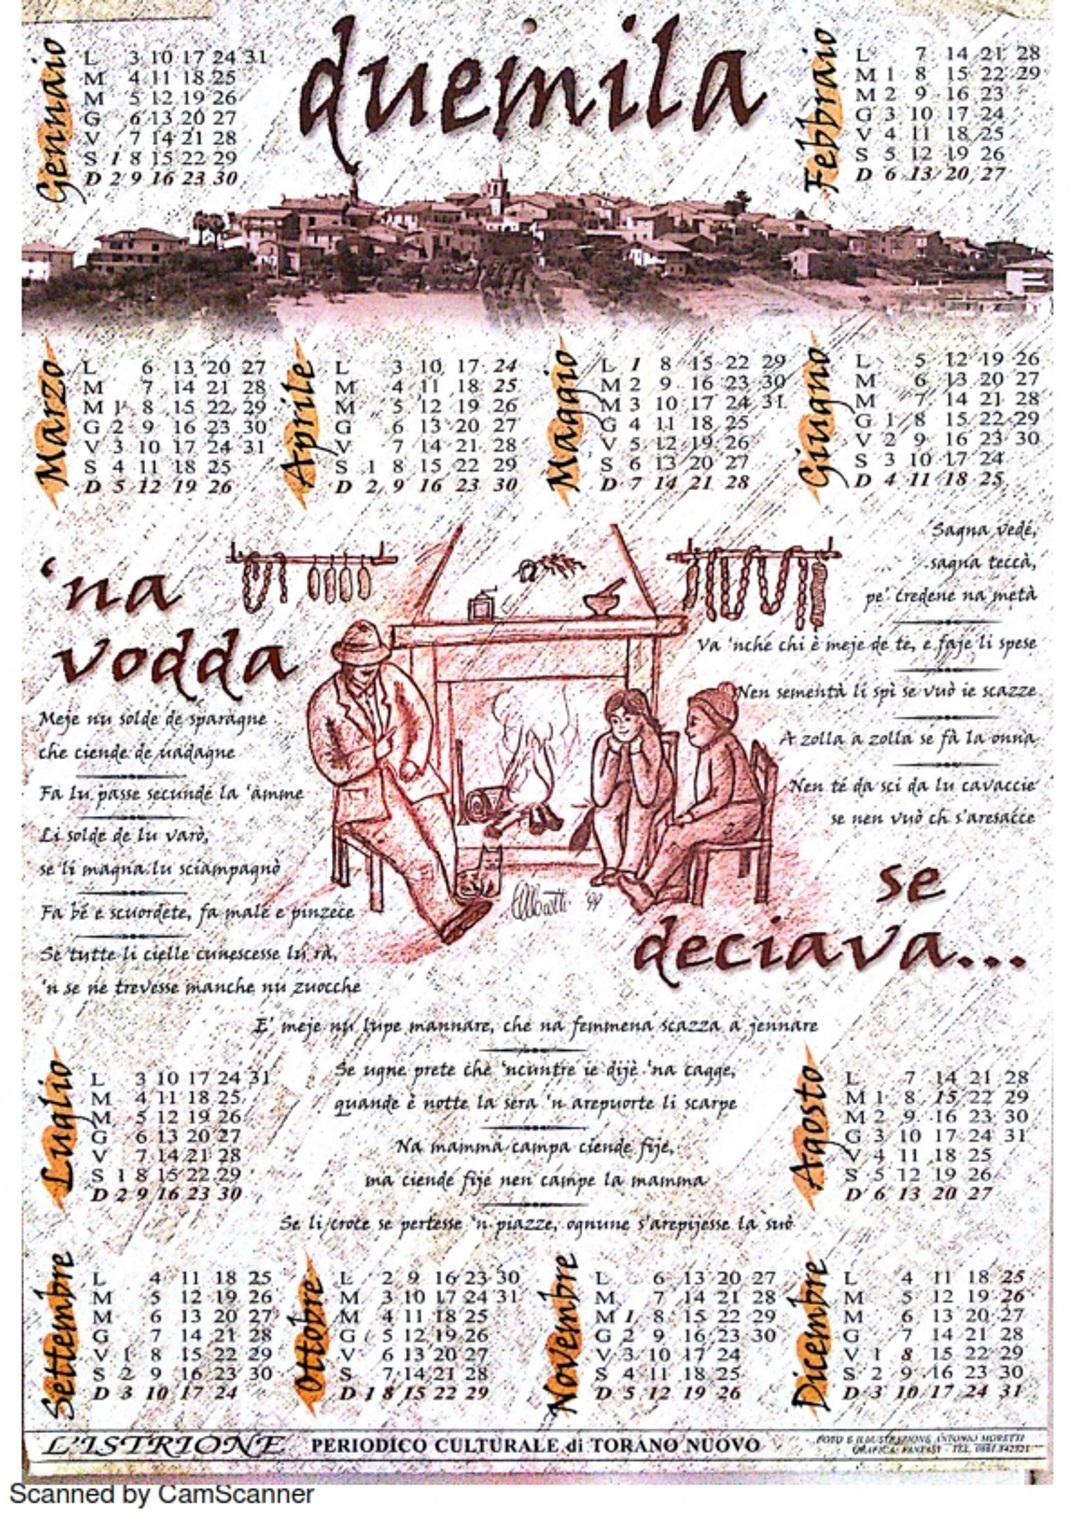 duemila
Gennaio
L 3 10 17 24 31
M 4 11 18 25
M 5 12 19 26
G 6 13 20 27
V 7 14 21 28
S 1 8 15 22 29
D 2 9 16 23 30
Febbraio
L 7 14 21 28
M 1 8 15 22 29
M 2 9 16 23
G 3 10 17 24
V 4 11 18 25
S 5 12 19 26
D 6 13 20 27
Marzo
L 6 13 20 27
M 7 14 21 28
M 1 8 15 22 29
G 2 9 16 23 30
V 3 10 17 24 31
S 4 11 18 25
D 5 12 19 26
Aprile
L 3 10 17 24
M 4 11 18 25
M 5 12 19 26
G 6 13 20 27
V 7 14 21 28
S 1 8 15 22 29
D 2 9 16 23 30
Maggio
L 1 8 15 22 29
M 2 9 16 23 30
M 3 10 17 24 31
G 4 11 18 25
V 5 12 19 26
S 6 13 20 27
D 7 14 21 28
Giugno
L 5 12 19 26
M 6 13 20 27
M 7 14 21 28
G 1 8 15 22 29
V 2 9 16 23 30
S 3 10 17 24
D 4 11 18 25
'na
vodda
Meje nu solde de sparagne
che ciende de uadagne
Fa lu passe secunde la 'amme
Li solde de lu varò,
se li magna lu sciampagnò
Fa bé e scuordete, fa male e pinzece
Se tutte li cielle cunescesse lu rà,
'n se ne trevesse manche nu zuocche
Sagna vedé,
sagna teccà,
pe' credene na metà
Va 'nché chi è meje de te, e faje li spese
Nen sementà li spì se vuò ie scazze
A zolla a zolla se fà la onna
Nen té da scì da lu cavaccie
se nen vuò ch s'aresacce
se
deciava...
'99
E' meje nu lupe mannare, che na femmena scazza a jennare
Se ugne prete che 'ncuntre ie dijè 'na cagge,
quande è notte la sera 'n arepuorte li scarpe
Na mamma campa ciende fije,
ma ciende fije nen campe la mamma
Se li croce se pertesse 'n piazze, ognune s'arepijesse la suò
Luglio
L 3 10 17 24 31
M 4 11 18 25
M 5 12 19 26
G 6 13 20 27
V 7 14 21 28
S 1 8 15 22 29
D 2 9 16 23 30
Agosto
L 7 14 21 28
M 1 8 15 22 29
M 2 9 16 23 30
G 3 10 17 24 31
V 4 11 18 25
S 5 12 19 26
D 6 13 20 27
Settembre
L 4 11 18 25
M 5 12 19 26
M 6 13 20 27
G 7 14 21 28
V 1 8 15 22 29
S 2 9 16 23 30
D 3 10 17 24
Ottobre
L 2 9 16 23 30
M 3 10 17 24 31
M 4 11 18 25
G 5 12 19 26
V 6 13 20 27
S 7 14 21 28
D 1 8 15 22 29
Novembre
L 6 13 20 27
M 7 14 21 28
M 1 8 15 22 29
G 2 9 16 23 30
V 3 10 17 24
S 4 11 18 25
D 5 12 19 26
Dicembre
L 4 11 18 25
M 5 12 19 26
M 6 13 20 27
G 7 14 21 28
V 1 8 15 22 29
S 2 9 16 23 30
D 3 10 17 24 31
L'ISTRIONE PERIODICO CULTURALE di TORANO NUOVO
FOTO E ILLUSTRAZIONE ANTONIO MORETTI
GRAFICA: FANTASY - TEL.
Scanned by CamScanner